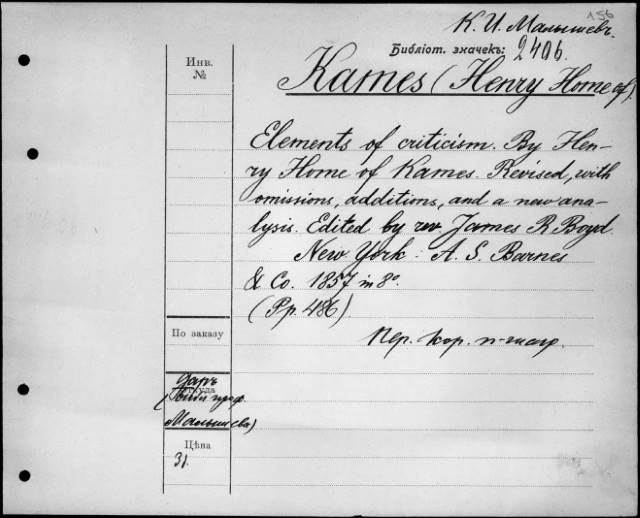 156
К. И. Малышевъ.
Библіот. значекъ: 2406.
Инв.
№
Kames (Henry Home of).
Elements of criticism. By Hen-
ry Home of Kames. Revised, with
omissions, additions, and a new ana-
lysis. Edited by rev. James R Boyd.
New York: A. S. Barnes
& Co. 1857 in 8°.
(Pp. 486).
По заказу
Пер. кор. п-шагр.
Даръ
Откуда
проф.
Малышева)
Цѣна
31.